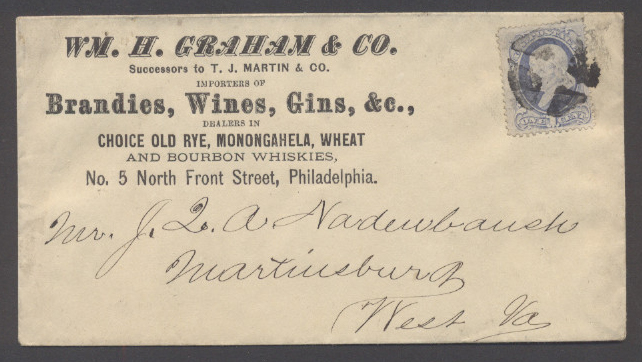 WM. H. GRAHAM & CO.
Successors to T. J. MARTIN & CO.
IMPORTERS OF
Brandies, Wines, Gins, &c.,
DEALERS IN
CHOICE OLD RYE, MONONGAHELA, WHEAT
AND BOURBON WHISKIES,
No. 5 North Front Street, Philadelphia.
Mr. J. Q. A Nadenboush
Martinsburg
West Va
ONE CENT